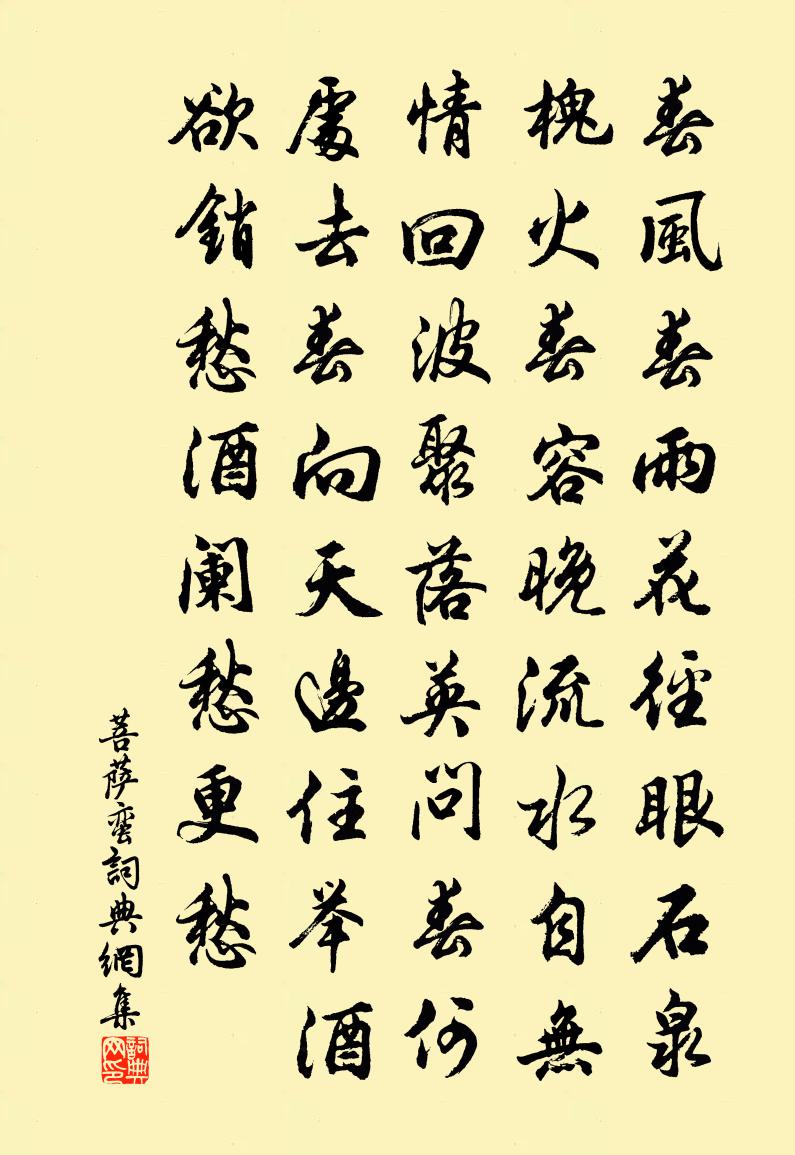 春風春雨花徑眼石泉
槐火春容晚流水自無
情回波聚落英問春何
處去春向天邊住举酒
欲銷愁酒阑愁更愁
菩萨蛮詞典網集
詞典网印